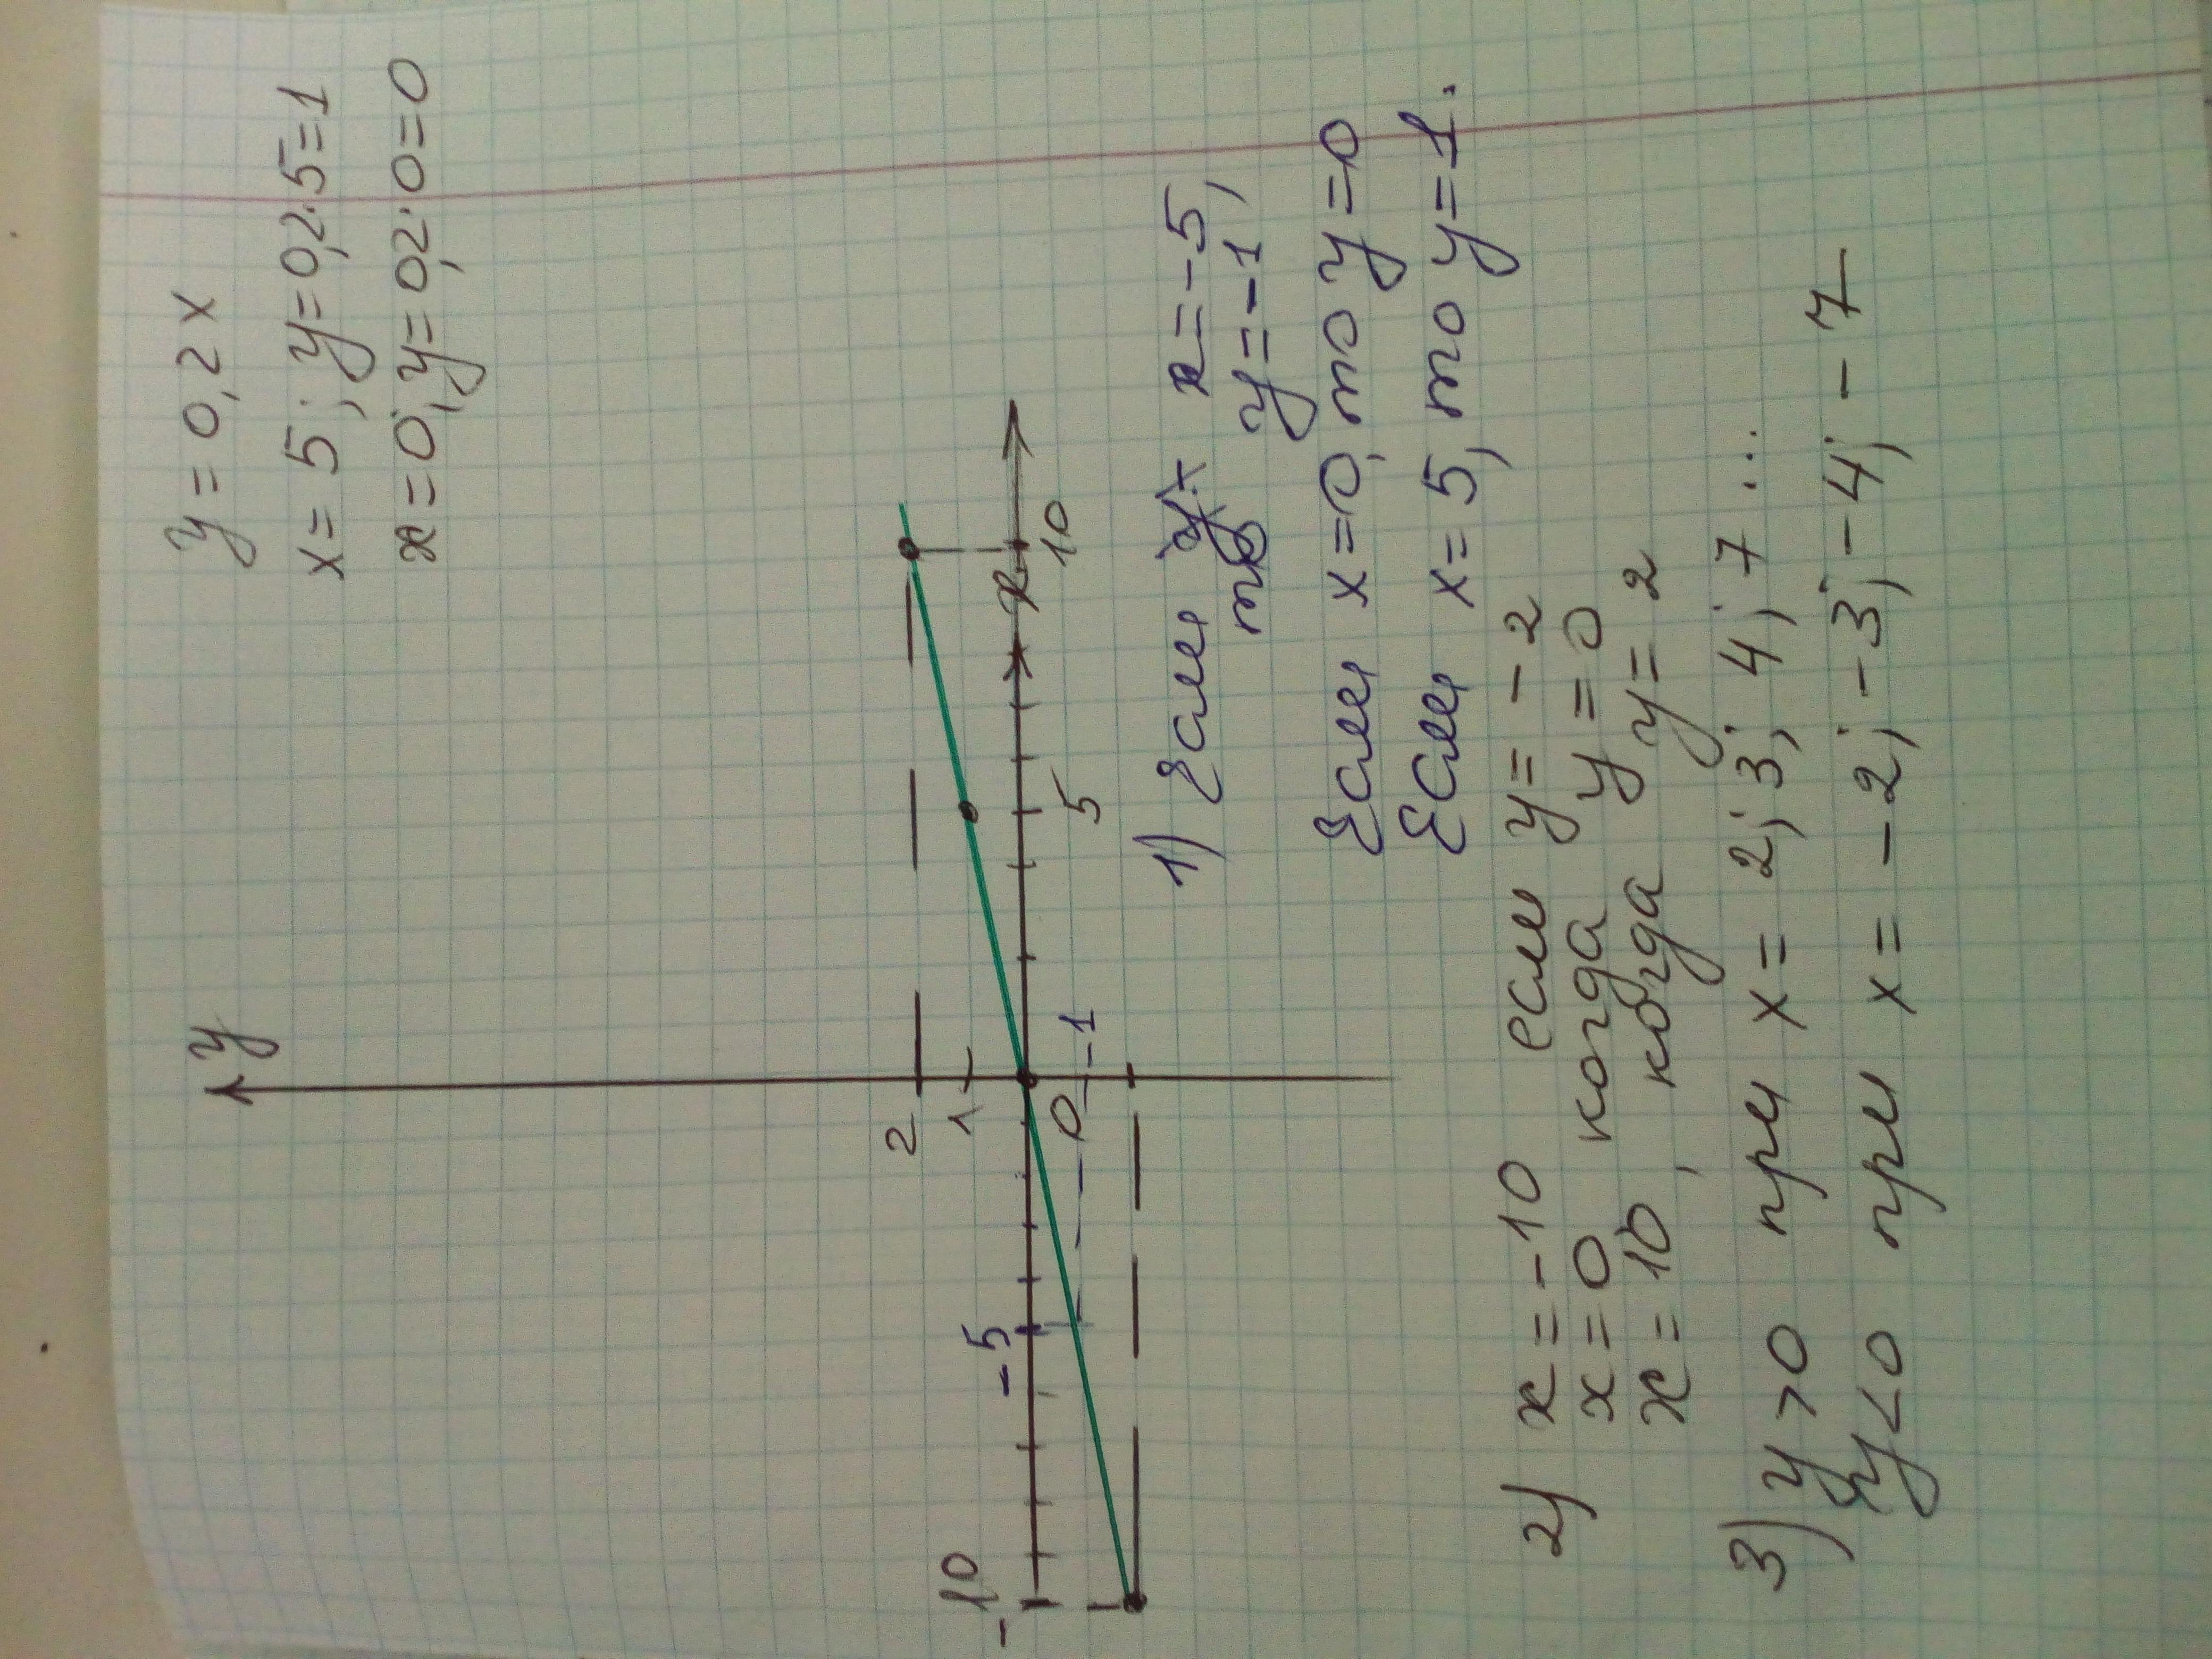 y = 0,2x
x = 5; y = 0,2·5=1
x = 0; y = 0,2·0=0
y
2
1
-10
-5
0
-1
5
x
10
1) Если x = -5,
то y = -1,
Если x = 0, то y = 0
Если x = 5, то y = 1.
2) x = -10 если y = -2
x = 0 когда y = 0
x = 10, когда y = 2
3) y > 0 при x = 2; 3; 4; 7 ...
y < 0 при x = -2; -3; -4; -7